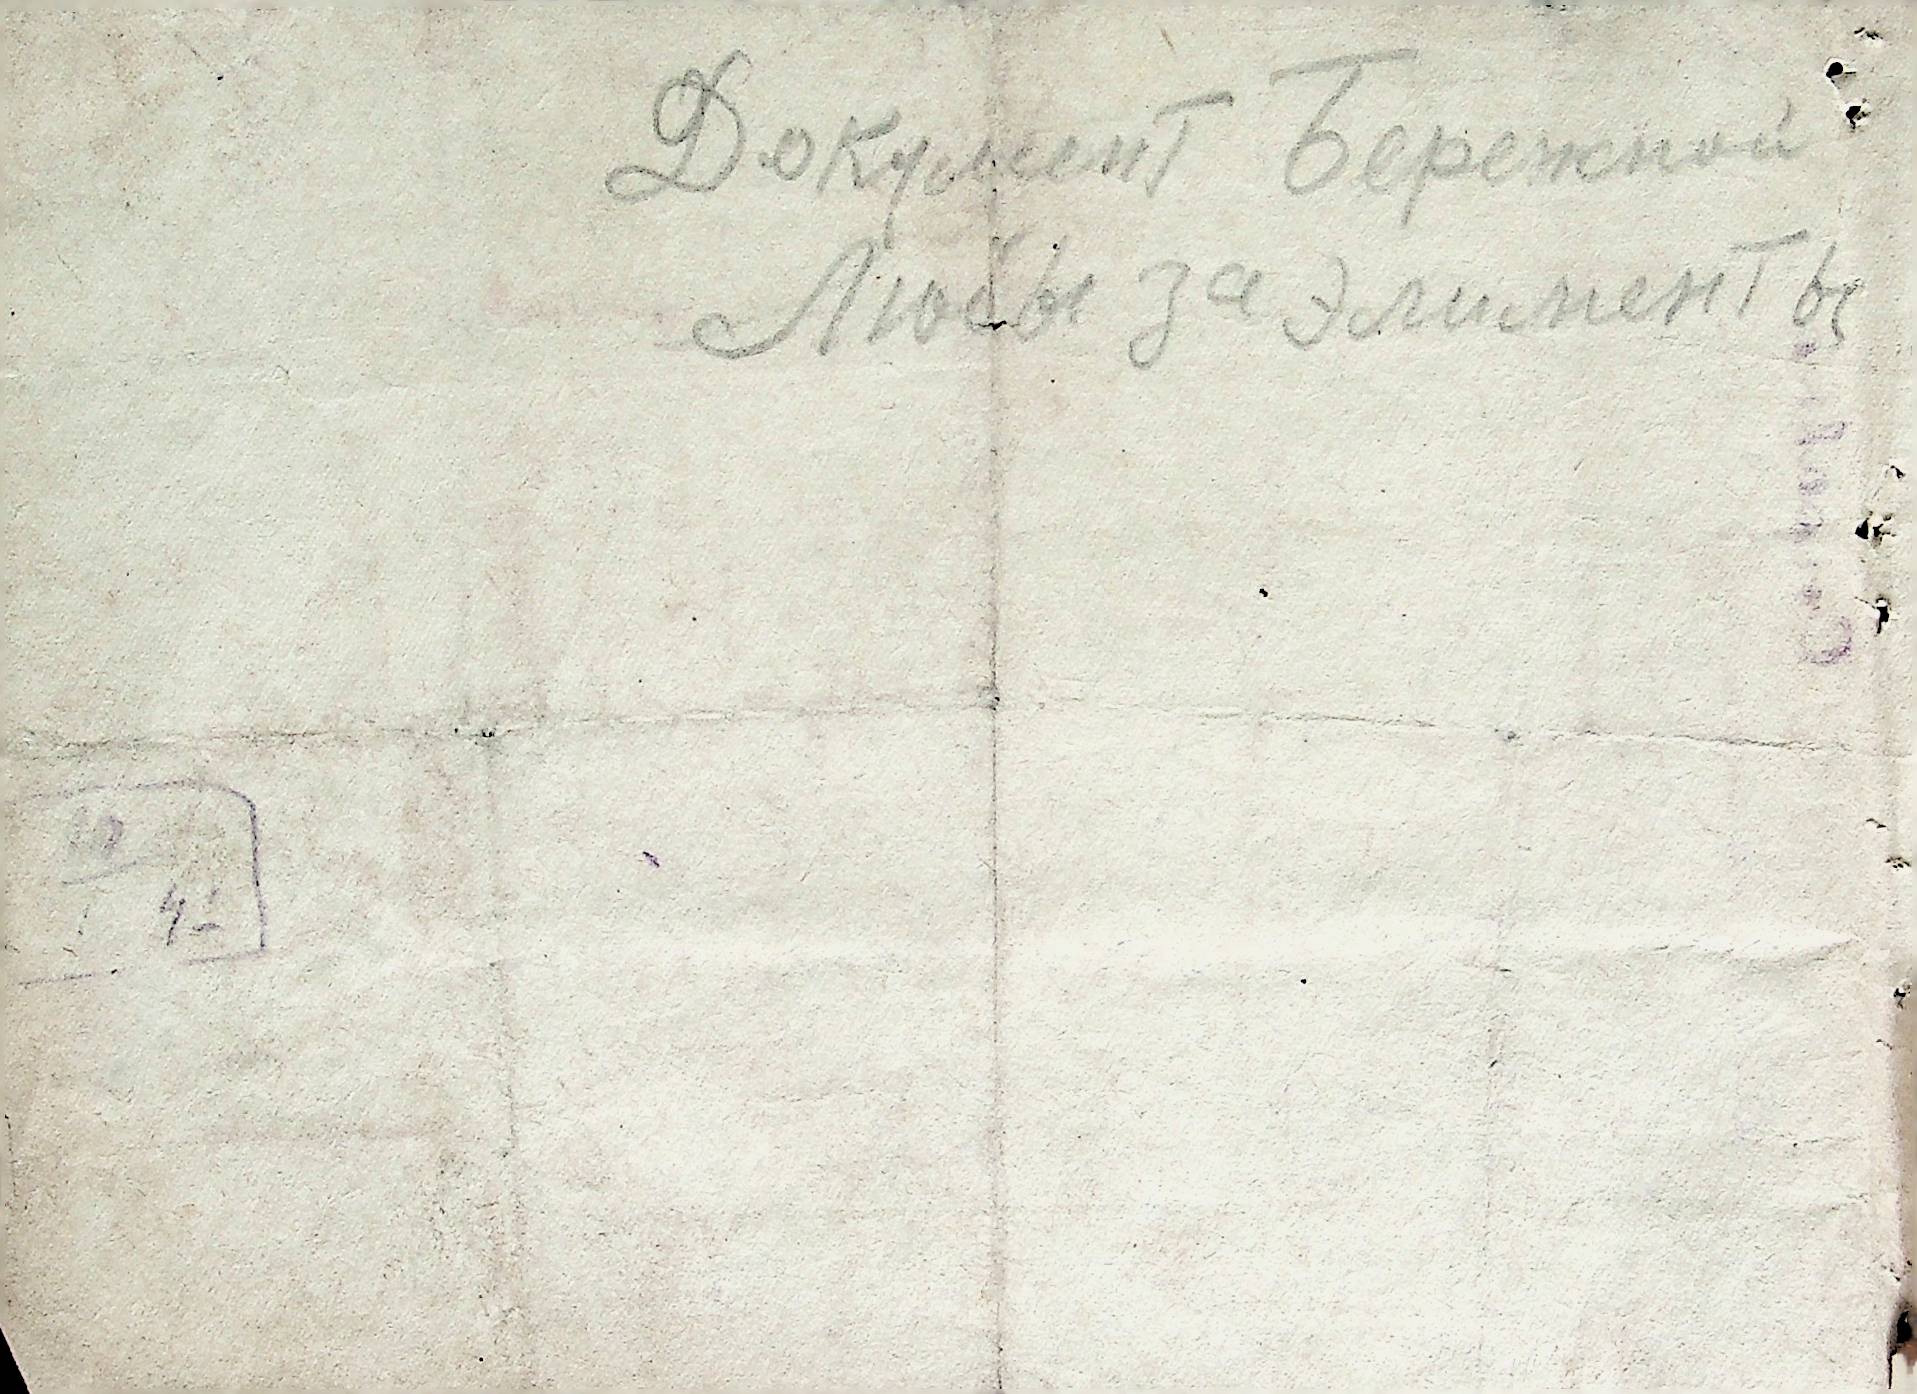 Документ Бережной
Любы за элименты